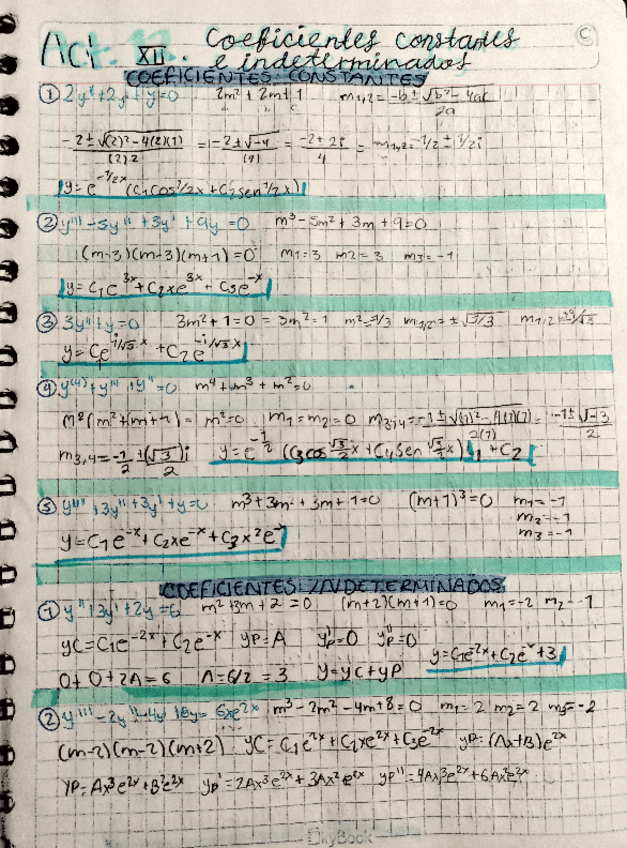 Act. 12. Coeficientes constantes
XII. e indeterminados
COEFICIENTES CONSTANTES
① 2y''+2y'+y=0 2m²+2m+1 m₁,₂=(-b±√(b²-4ac))/2a
(-2±√((2)²-4(2)(1)))/((2)2) = (-2±√-4)/(4) = (-2±2i)/4 = m₁,₂=-1/2±1/2i
y=e^(-1/2x)(C₁cos 1/2x+C₂sen 1/2x)
② y'''-5y''+3y'+9y=0 m³-5m²+3m+9=0
(m-3)(m-3)(m+1)=0 m₁=3 m₂=3 m₃=-1
y=C₁e^(3x)+C₂xe^(3x)+C₃e^(-x)
③ 3y''+y=0 3m²+1=0 = 3m²=-1 m²=-1/3 m₁,₂=±√-1/3
y=C₁e^(i/√3 x)+C₂e^(-i/√3 x)
④ y⁽⁴⁾+y'''+y''=0 m⁴+m³+m²=0
m²(m²+m+1)= m²=0 m₁=m₂=0 m₃,₄=(-1±√((1)²-4(1)(1)))/2(1) = (-1±√-3)/2
m₃,₄=-1/2±(√3)i/2 y=e^(-1/2)(C₃cos √3/2 x+C₄sen √3/2 x)
⑤ y'''+3y''+3y'+y=0 m³+3m²+3m+1=0 (m+1)³=0 m₁=-1
m₂=-1
m₃=-1
y=C₁e^(-x)+C₂xe^(-x)+C₃x²e^(-x)
COEFICIENTES INDETERMINADOS
① y''+3y'+2y=6 m²+3m+2=0 (m+2)(m+1)=0 m₁=-2 m₂=-1
yc=C₁e^(-2x)+C₂e^(-x) yp=A yp'=0 yp''=0
0+0+2A=6 A=6/2=3 y=yc+yp y=C₁e^(-2x)+C₂e^(-x)+3
② y'''-2y''-4y'+8y=6xe^(2x) m³-2m²-4m+8=0 m₁=2 m₂=2 m₃=-2
(m-2)(m-2)(m+2) yc=C₁e^(2x)+C₂xe^(2x)+C₃e^(-2x) yp=(Ax+B)e^(2x)
yp=Ax³e^(2x)+B²e^(2x) yp'=2Ax³e^(2x)+3Ax²e^(2x) yp''=4Ax³e^(2x)+6Ax²e^(2x)
SkyBook